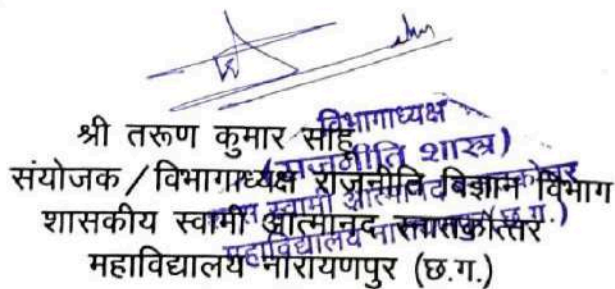 श्री तरूण कुमार साहू
संयोजक / विभागाध्यक्ष राजनीति विज्ञान विभाग
शासकीय स्वामी आत्मानंद स्नातकोत्तर
महाविद्यालय नारायणपुर (छ.ग.)
विभागाध्यक्ष
(राजनीति शास्त्र)
स्वामी आत्मानंद
महाविद्यालय नारायणपुर (छ.ग.)